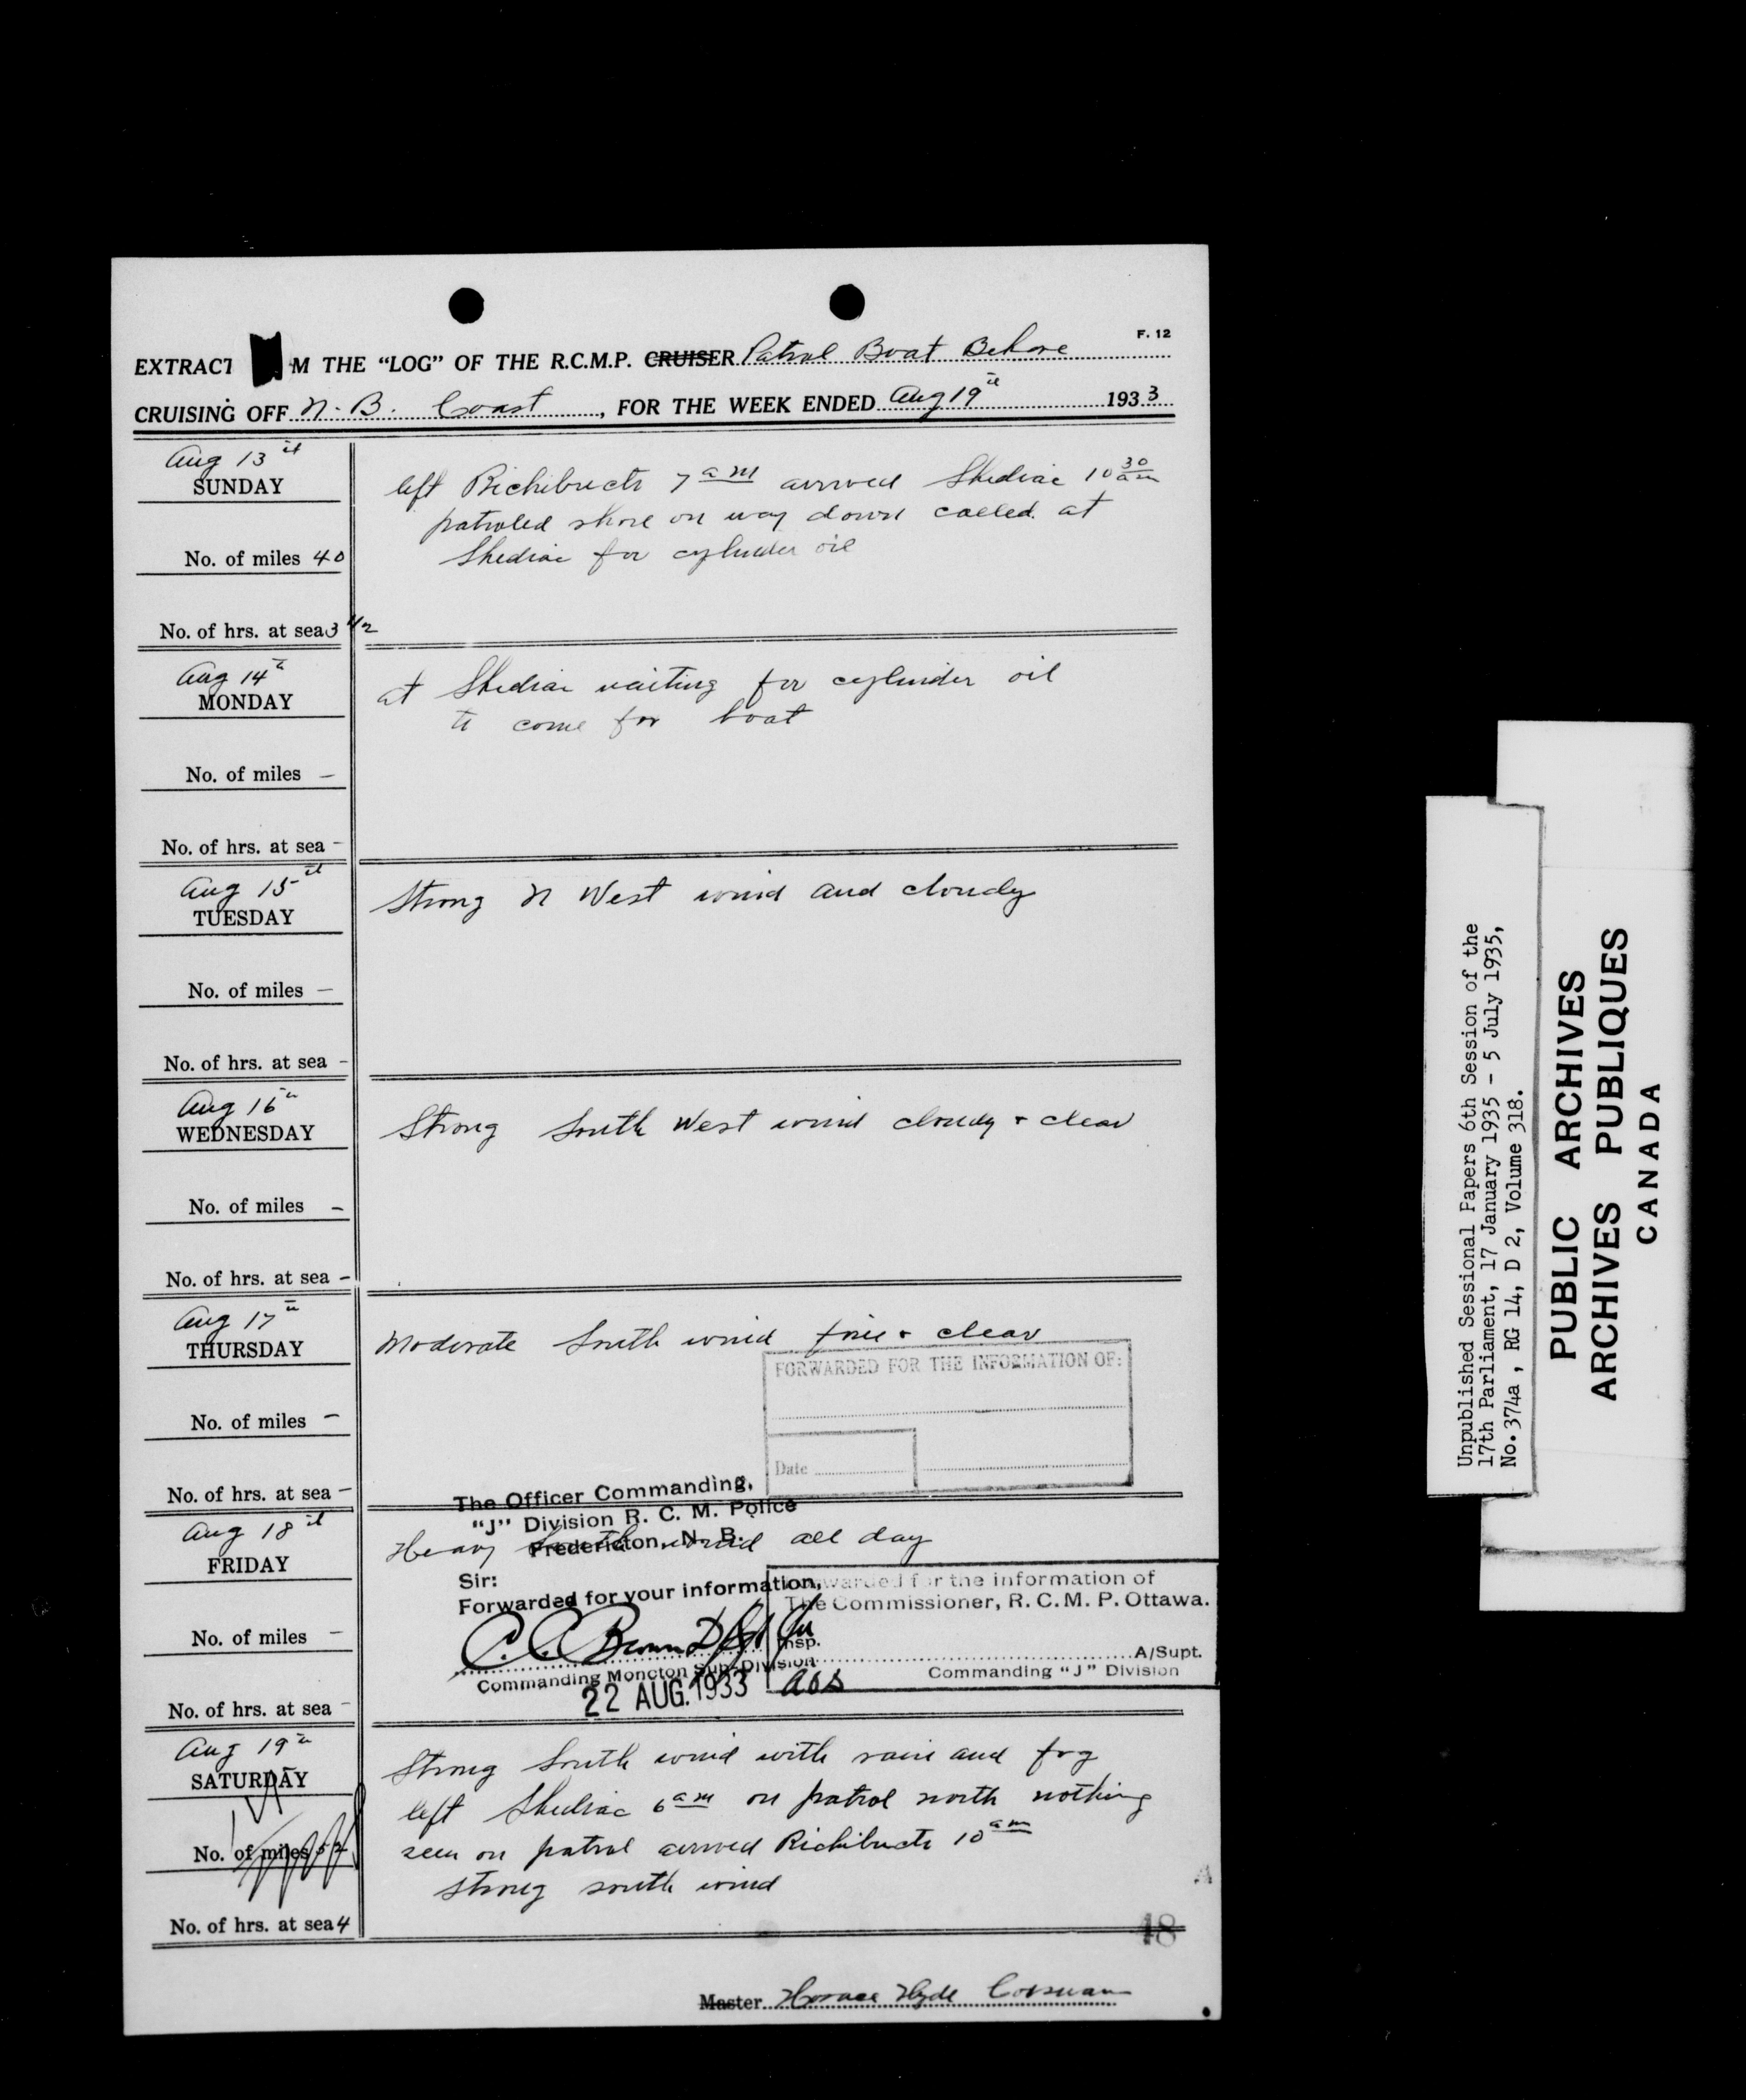 F. 12
EXTRACT M THE "LOG" OF THE R.C.M.P. CRUISER Patrol Boat Behave
CRUISING OFF N. B. Coast, FOR THE WEEK ENDED Aug 19th 1933
Aug 13th
SUNDAY
No. of miles 40
No. of hrs. at sea 3 1/2
left Richibucto 7 am arrived Shediac 10 30 am
patroled shore on way down called at
Shediac for cylinder oil
Aug 14th
MONDAY
No. of miles –
No. of hrs. at sea -
at Shediac waiting for cylinder oil
to come for boat
Aug 15th
TUESDAY
No. of miles –
No. of hrs. at sea -
Strong N West wind and cloudy
Aug 16th
WEDNESDAY
No. of miles -
No. of hrs. at sea -
Strong South West wind cloudy + clear
Aug 17th
THURSDAY
No. of miles -
No. of hrs. at sea -
Moderate South wind fine + clear
FORWARDED FOR THE INFORMATION OF:
Date
The Officer Commanding,
"J" Division R. C. M. Police
Fredericton, N. B.
Aug 18th
FRIDAY
No. of miles –
No. of hrs. at sea -
Heavy South wind all day
Sir:
Forwarded for your information,
C. C. Brown
Insp.
Commanding Moncton Sub-Division
22 AUG. 1933
Forwarded for the information of
The Commissioner, R. C. M. P. Ottawa.
A/Supt.
Commanding "J" Division
Aug 19th
SATURDAY
No. of miles 52
No. of hrs. at sea 4
Strong South wind with rain and fog
left Shediac 6 am on patrol north nothing
seen on patrol arrived Richibucto 10 am
strong south wind
18
Master Horace Hyde Corsman
Unpublished Sessional Papers 6th Session of the
17th Parliament, 17 January 1935 - 5 July 1935,
No. 374a , RG 14, D 2, Volume 318.
PUBLIC ARCHIVES
ARCHIVES PUBLIQUES
CANADA